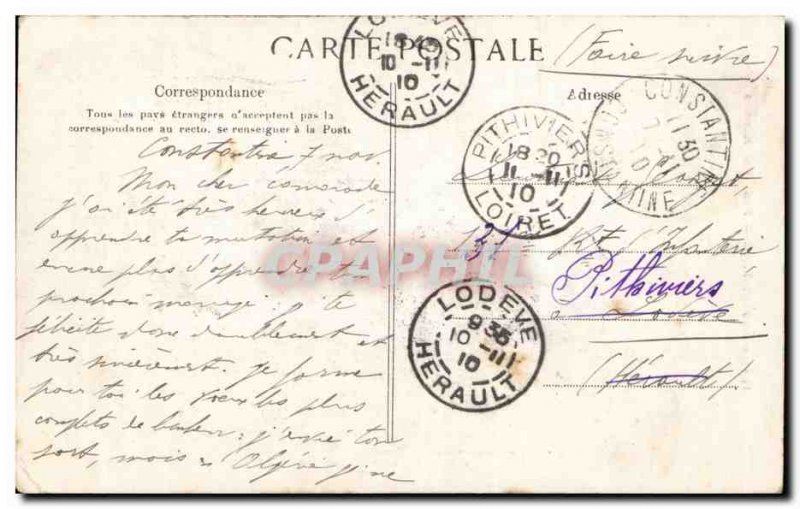 CARTE POSTALE
(Faire suivre)
Correspondance
Tous les pays étrangers n'acceptent pas la
correspondance au recto. se renseigner à la Poste
Adresse
Constantine 7 nov.
Mon cher camarade
j'ai été très heureux d'
apprendre ta mutation et
encore plus d'apprendre ton
prochain mariage; je te
félicite donc doublement et
très sincèrement. Je forme
pour toi les voeux les plus
complets de bonheur; j'envie ton
sort, mais
LODEVE
18 40
10 -11
10
HERAULT
PITHIVIERS
18 20
11 -11
10
LOIRET
CONSTANTINE
11 30
7 -11
10
CONSTANTINE
Rt d'Infanterie
Pithiviers
à Lodève
(Hérault)
LODEVE
9 35
10 -11
10
HERAULT
CPAPHIL